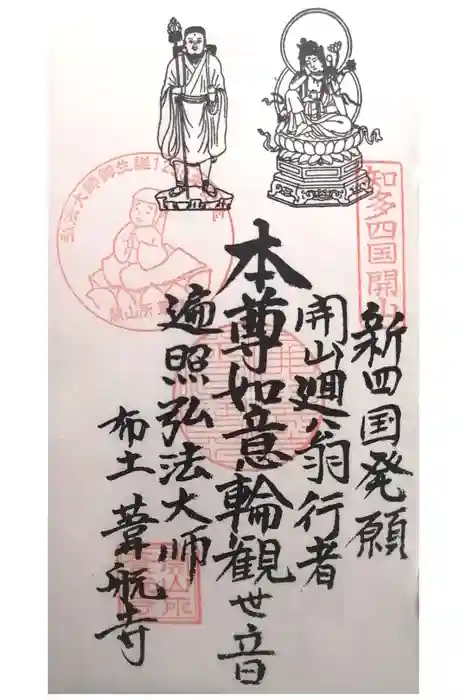 新四国発願
開山廻八翁行者
本尊如意輪観世音
遍照弘法大師
布土 葦航寺
知多四国開山
弘法大師御生誕12
開山所